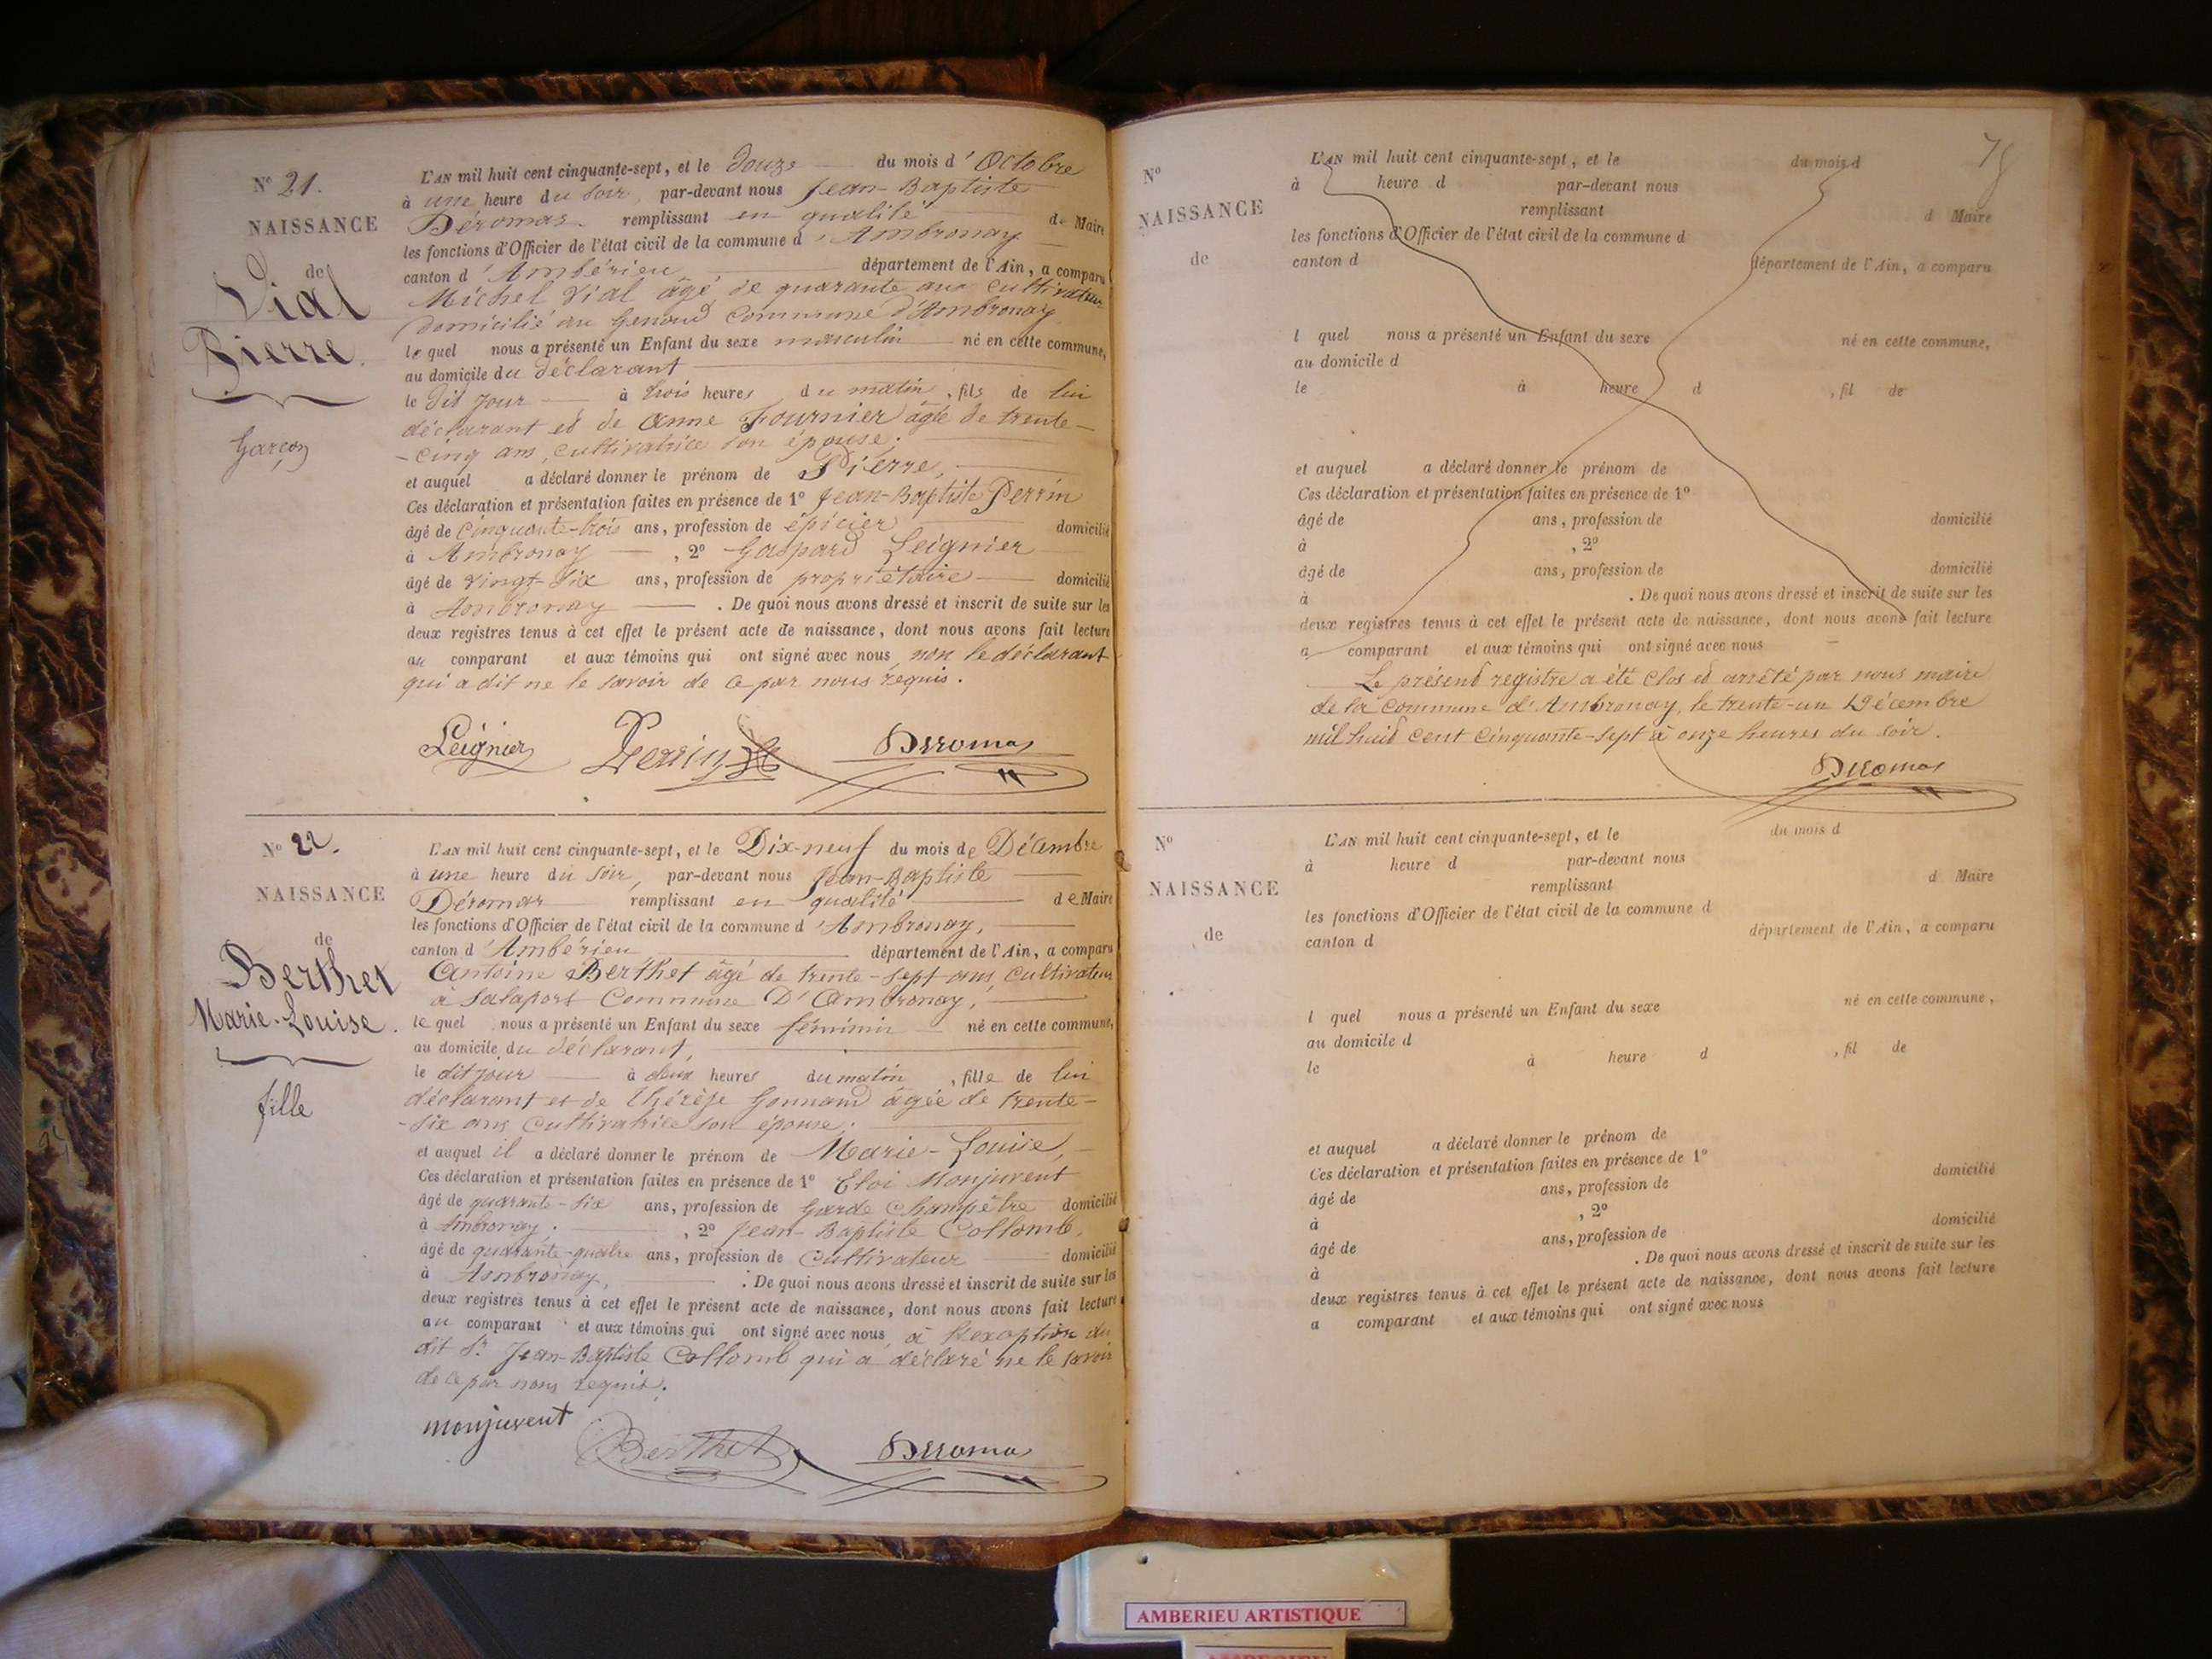 N° 21.
NAISSANCE
de
Vial
Pierre.
Garçon
L'AN mil huit cent cinquante-sept, et le Douze du mois d'Octobre
à une heure du soir, par-devant nous Jean-Baptiste
Déromas remplissant en qualité de Maire
les fonctions d'Officier de l'état civil de la commune d'Ambronay
canton d'Ambérieu département de l'Ain, a comparu
Michel Vial âgé de quarante ans cultivateur
domicilié au Genoud Commune d'Ambronay
lequel nous a présenté un Enfant du sexe masculin né en cette commune,
au domicile du déclarant
le dit jour à trois heures du matin, fils de lui
déclarant et de Anne Fournier âgée de trente-
-cinq ans, cultivatrice son épouse.
et auquel a déclaré donner le prénom de Pierre,
Ces déclaration et présentation faites en présence de 1° Jean-Baptiste Perrin
âgé de cinquante-trois ans, profession de épicier domicilié
à Ambronay, 2° Gaspard Leignier
âgé de vingt-six ans, profession de propriétaire domicilié
à Ambronay. De quoi nous avons dressé et inscrit de suite sur les
deux registres tenus à cet effet le présent acte de naissance, dont nous avons fait lecture
au comparant et aux témoins qui ont signé avec nous, non le déclarant
qui a dit ne le savoir de ce par nous requis.
Leignier Perrin Deromas
N° 22.
NAISSANCE
de
Berthet
Marie-Louise.
fille
L'AN mil huit cent cinquante-sept, et le Dix-neuf du mois de Décembre
à une heure du soir, par-devant nous Jean-Baptiste
Déromas remplissant en qualité de Maire
les fonctions d'Officier de l'état civil de la commune d'Ambronay,
canton d'Ambérieu département de l'Ain, a comparu
Antoine Berthet âgé de trente-sept ans, cultivateur
à Salaport Commune D'Ambronay,
lequel nous a présenté un Enfant du sexe féminin né en cette commune,
au domicile du déclarant,
le dit jour à deux heures du matin, fille de lui
déclarant et de Thérèse Gonnand âgée de trente-
-six ans cultivatrice son épouse.
et auquel il a déclaré donner le prénom de Marie-Louise,
Ces déclaration et présentation faites en présence de 1° Eloi Monjuvent
âgé de quarante-six ans, profession de Garde Champêtre domicilié
à Ambronay. , 2° Jean-Baptiste Collomb,
âgé de quarante-quatre ans, profession de Cultivateur domicilié
à Ambronay, . De quoi nous avons dressé et inscrit de suite sur les
deux registres tenus à cet effet le présent acte de naissance, dont nous avons fait lecture
au comparant et aux témoins qui ont signé avec nous à l'exception du
dit Sr. Jean-Baptiste Collomb qui a déclaré ne le savoir
de ce par nous requis.
monjuvent Berthet Deromas
N°
NAISSANCE
de
L'AN mil huit cent cinquante-sept, et le du mois d
à heure d par-devant nous
remplissant d Maire
les fonctions d'Officier de l'état civil de la commune d
canton d département de l'Ain, a comparu
l quel nous a présenté un Enfant du sexe né en cette commune,
au domicile d
le à heure d , fil de
et auquel a déclaré donner le prénom de
Ces déclaration et présentation faites en présence de 1°
âgé de ans, profession de domicilié
à , 2°
âgé de ans, profession de domicilié
à . De quoi nous avons dressé et inscrit de suite sur les
deux registres tenus à cet effet le présent acte de naissance, dont nous avons fait lecture
a comparant et aux témoins qui ont signé avec nous
Le présent registre a été clos et arrêté par nous maire
de la Commune d'Ambronay, le trente-un Décembre
mil huit cent cinquante-sept à onze heures du soir.
Deromas
N°
NAISSANCE
de
L'AN mil huit cent cinquante-sept, et le du mois d
à heure d par-devant nous
remplissant d Maire
les fonctions d'Officier de l'état civil de la commune d
canton d département de l'Ain, a comparu
l quel nous a présenté un Enfant du sexe né en cette commune,
au domicile d
le à heure d , fil de
et auquel a déclaré donner le prénom de
Ces déclaration et présentation faites en présence de 1°
âgé de ans, profession de domicilié
à , 2°
âgé de ans, profession de domicilié
à . De quoi nous avons dressé et inscrit de suite sur les
deux registres tenus à cet effet le présent acte de naissance, dont nous avons fait lecture
a comparant et aux témoins qui ont signé avec nous
AMBERIEU ARTISTIQUE